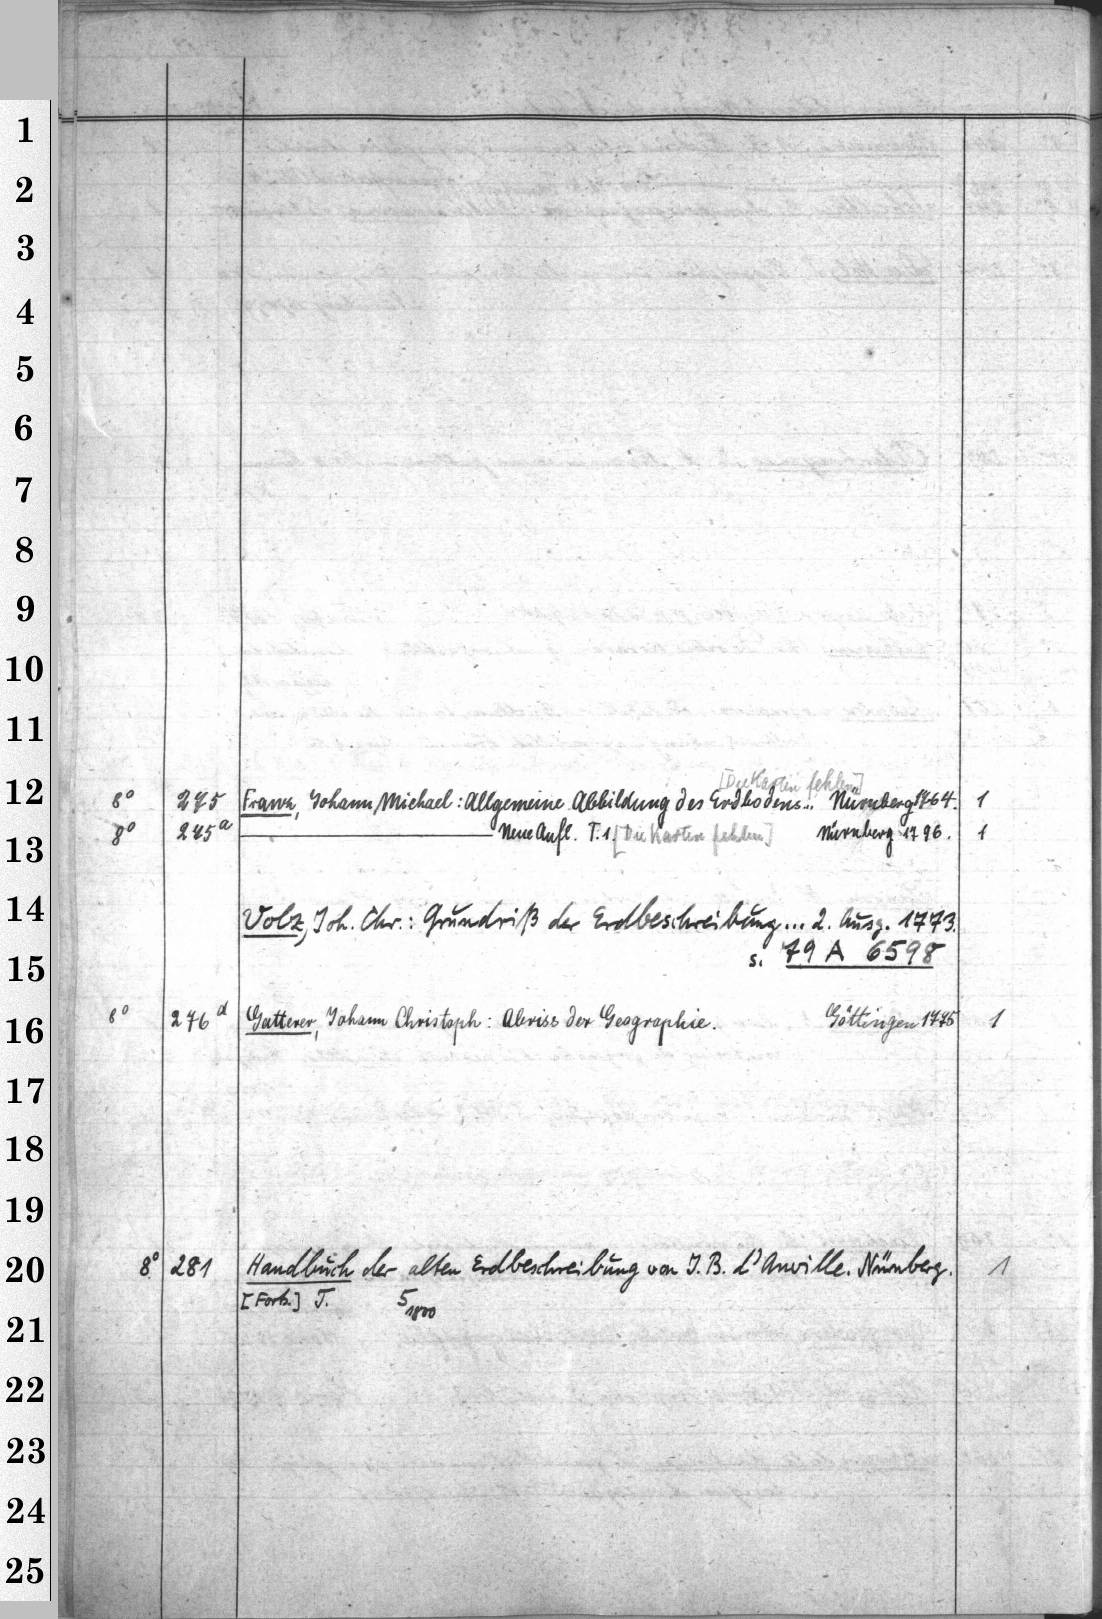 1
2
3
4
5
6
7
8
9
10
11
[Die Karten fehlen]
12 8° 275 Franz, Johann Michael: Allgemeine Abbildung des Erdbodens... Nürnberg 1764. 1
13 8° 275a Neue Aufl. T. 1. [Die Karten fehlen] Nürnberg 1796. 1
14 Volz, Joh. Chr.: Grundriß der Erdbeschreibung... 2. Ausg. 1773.
15 s. 79 A 6598
16 8° 276d Gatterer, Johann Christoph: Abriss der Geographie. Göttingen 1775 1
17
18
19
20 8° 281 Handbuch der alten Erdbeschreibung von J. B. D'Anville. Nürnberg. 1
21 [Forts.] T. 5 1800
22
23
24
25